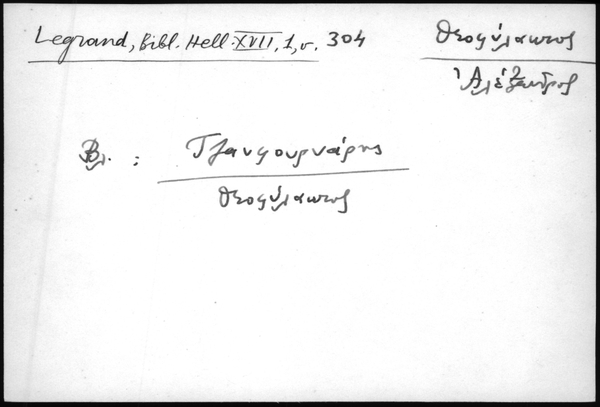 Legrand, Bibl. Hell. XVII, 1, σ. 304
Θεοφύλακτος
Ἀλέξανδρος
Βλ. : Τζανφουρνάρης
Θεοφύλακτος